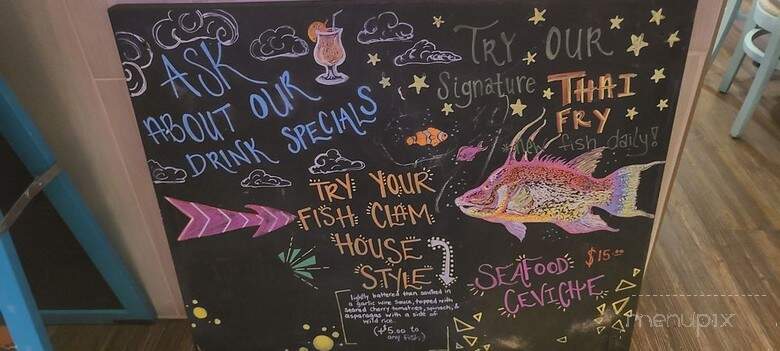 ASK
ABOUT OUR
DRINK SPECIALS
TRY OUR
Signature THAI
FRY
new fish daily!
TRY YOUR
FISH CLAM
HOUSE
STYLE
lightly battered then sautéed in
a garlic wine sauce, topped with
seared cherry tomatoes, spinach, &
asparagus with a side of
wild rice.
(+$5.00 to
any fish)
SEAFOOD $15.00
CEVICHE
menupix